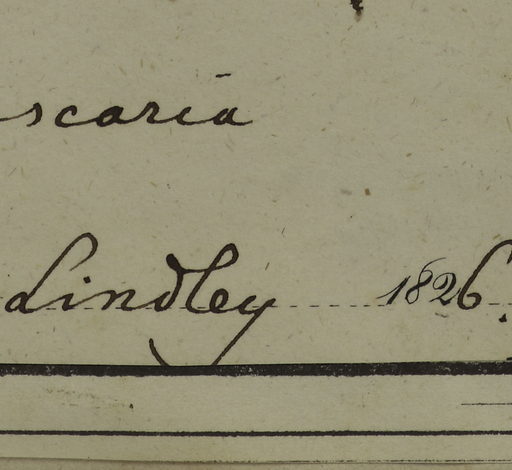 scaria
Lindley 1826.